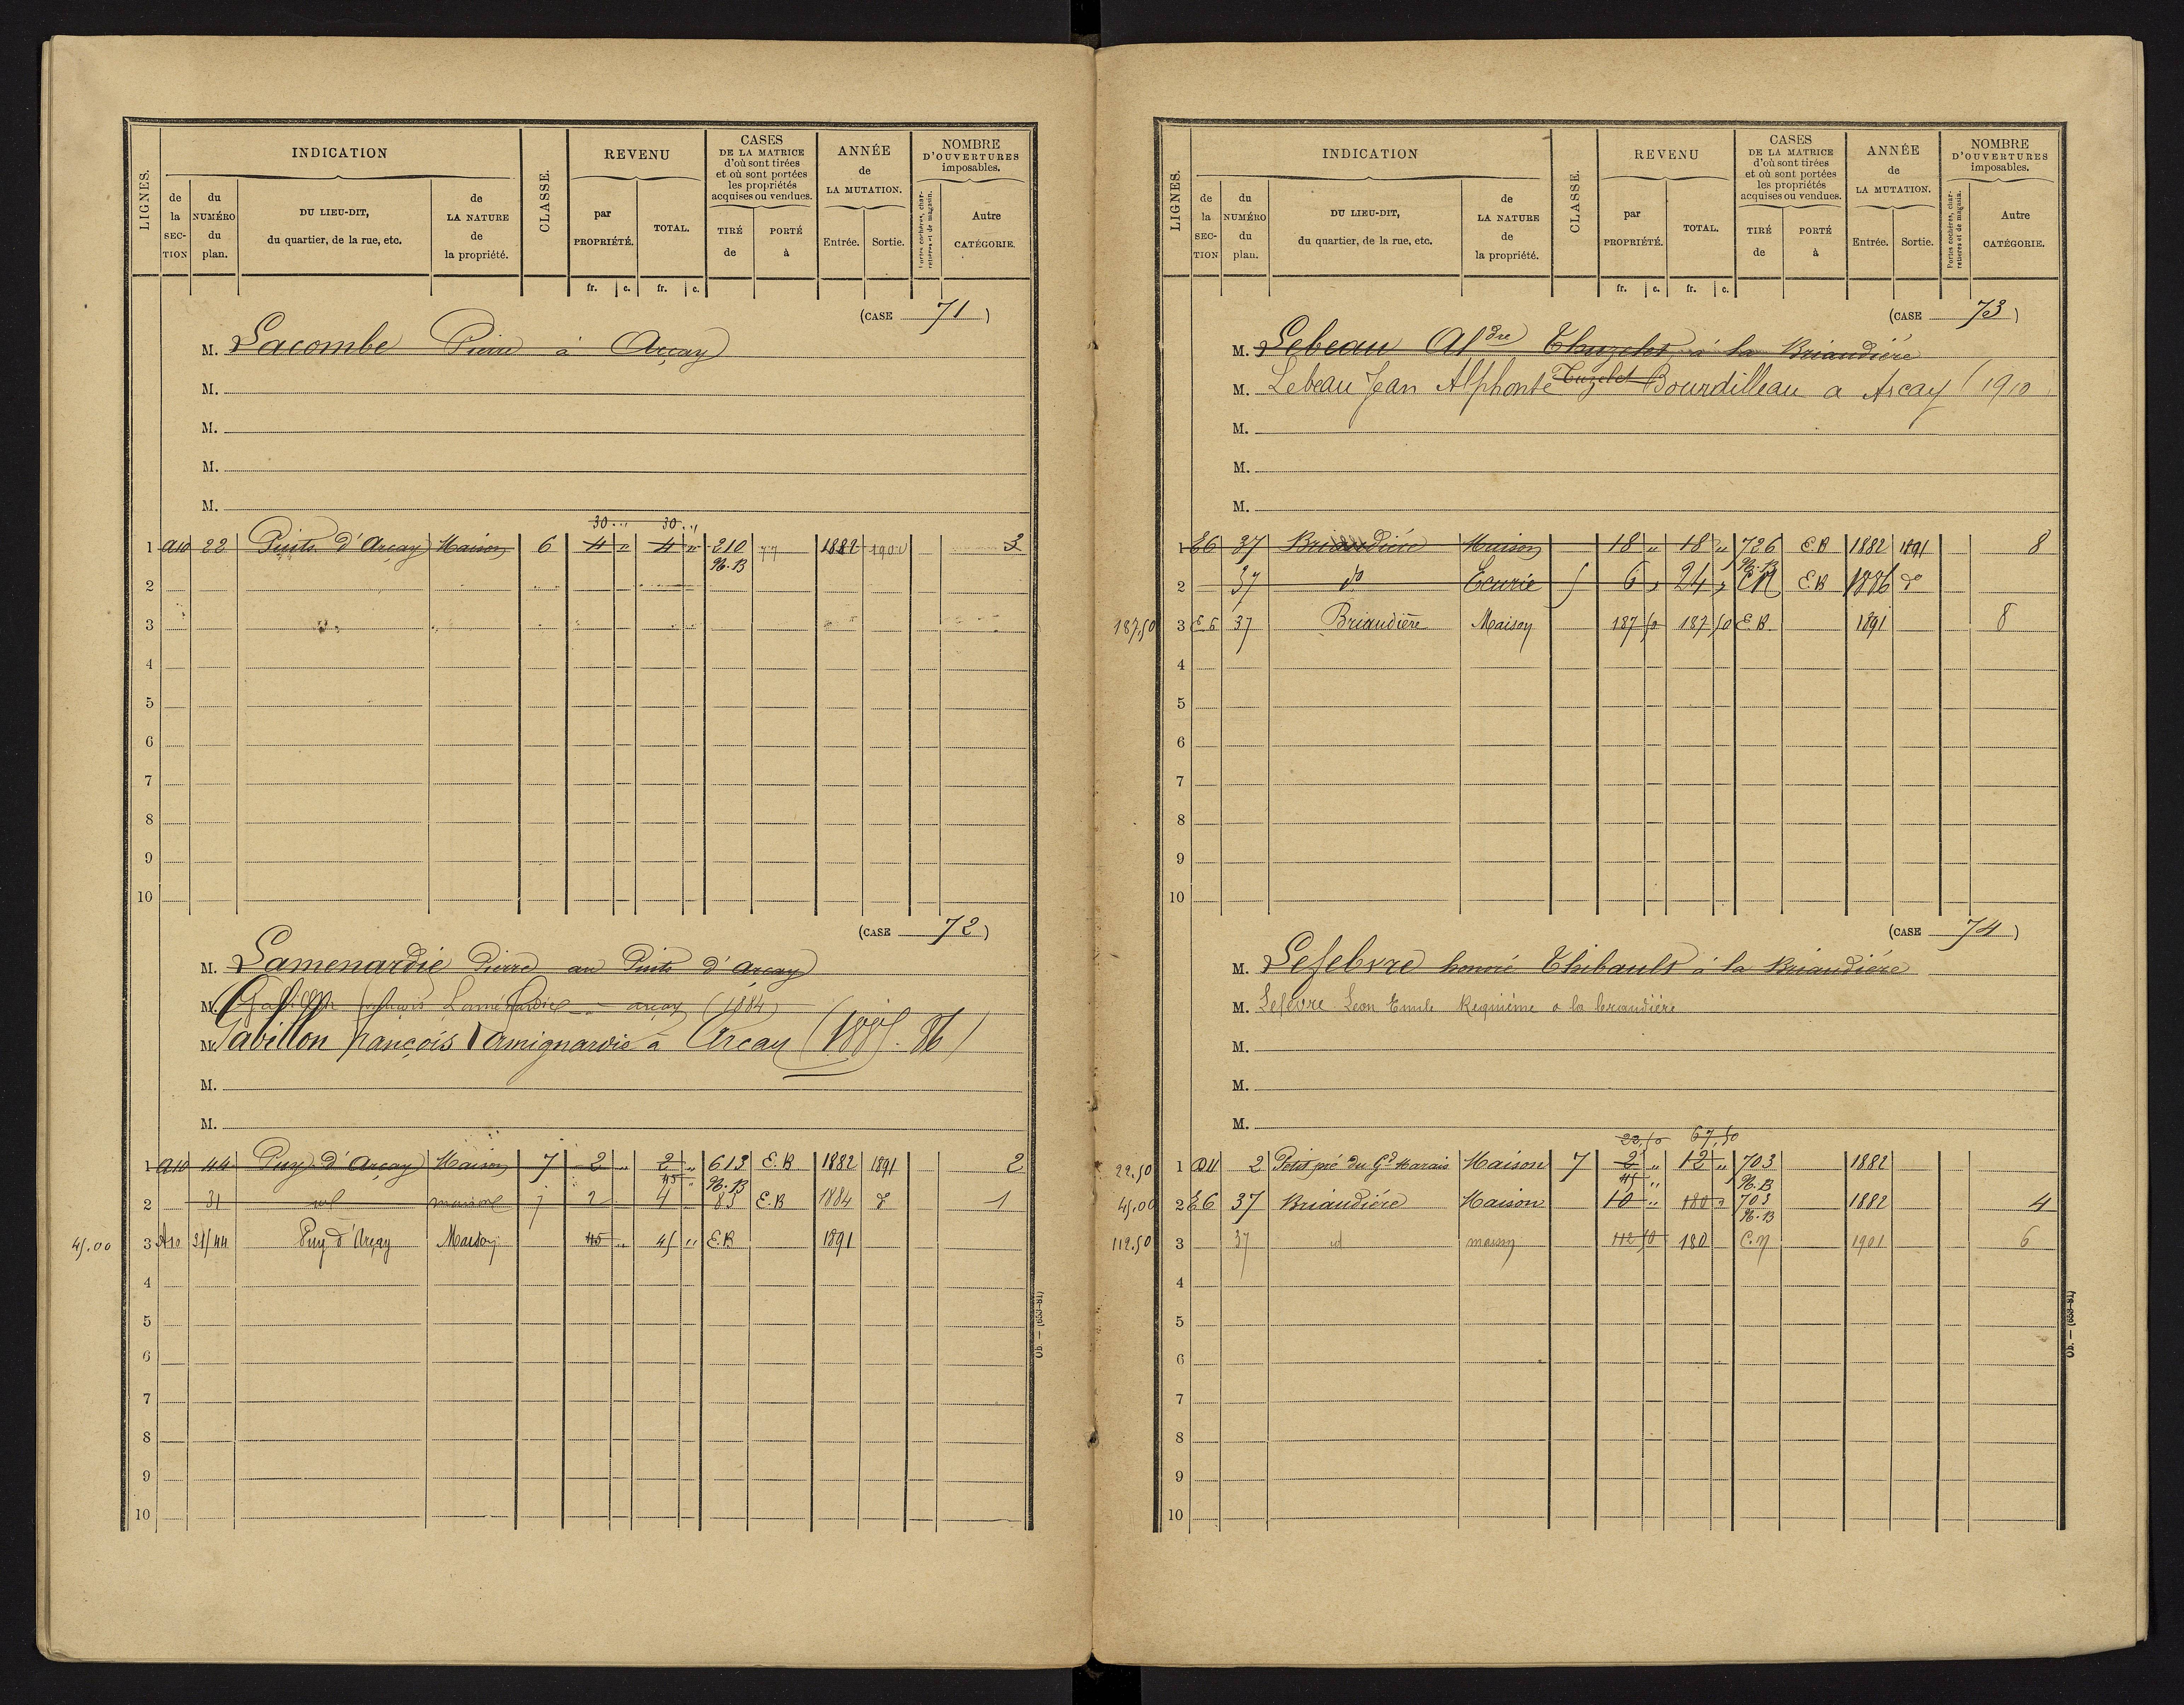 LIGNES.
INDICATION
de la SECTION
du NUMÉRO du plan.
DU LIEU-DIT, du quartier, de la rue, etc.
de LA NATURE de la propriété.
CLASSE.
REVENU
par PROPRIÉTÉ.
TOTAL.
CASES DE LA MATRICE d'où sont tirées et où sont portées les propriétés acquises ou vendues.
TIRÉ de
PORTÉ à
ANNÉE de LA MUTATION.
Entrée.
Sortie.
NOMBRE D'OUVERTURES imposables.
Portes cochères, charretières et de magasin.
Autre CATÉGORIE.
fr. c. fr. c.
(CASE 71)
M. Lacombe Pierre à Arçay
M.
M.
M.
M.
30 " 30 "
1 A10 22 Puits d'Arçay Maison 6 4 " 4 " 210 77 1882 190 3
N.B
2
3
4
5
6
7
8
9
10
(CASE 72)
M. Lamenardie Pierre au Puits d'Arçay
M. François arçay (1884)
M. Gabillon françois Lamignardie à Arçay (1885.86)
M.
M.
1 A10 44 Puy d'Arçay Maison 7 2 " 2 " 613 E.B 1882 1891 2
45 " N.B
2 31 id maison 7 2 4 83 E.B 1884 do 1
45.00 3 A10 31/44 Puy d'Arçay Maison 45 " 45 " E.B 1891
4
5
6
7
8
9
10
Ob. — (653-81)
LIGNES.
INDICATION
de la SECTION
du NUMÉRO du plan.
DU LIEU-DIT, du quartier, de la rue, etc.
de LA NATURE de la propriété.
CLASSE.
REVENU
par PROPRIÉTÉ.
TOTAL.
CASES DE LA MATRICE d'où sont tirées et où sont portées les propriétés acquises ou vendues.
TIRÉ de
PORTÉ à
ANNÉE de LA MUTATION.
Entrée.
Sortie.
NOMBRE D'OUVERTURES imposables.
Portes cochères, charretières et de magasin.
Autre CATÉGORIE.
fr. c. fr. c.
(CASE 73)
M. Lebeau Aldre Thuzelet à la Briaudière
M. Lebeau Jean Alphonse Tuzelet Bourdilleau a Arcay (1910
M.
M.
M.
1 E6 37 Briaudière Maison 18 " 18 " 726 E.B 1882 1891 8
N.B
2 37 do Ecurie 5 6 " 24 " CN E.B 1886 do
187,50 3 E6 37 Briaudière Maison 187 50 187 50 E.B. 1891 8
4
5
6
7
8
9
10
(CASE 74)
M. Lefebvre honoré Thibault à la Briaudière
M. Lefevre Leon Emile a la briaudière
M.
M.
M.
22,50 67,50
22.50 1 D11 2 Petit pré du Gd Marais Maison 7 2 " 12 " 703 1882
45 " N.B
45.00 2 E6 37 Briaudière Maison 10 " 180 " 703 1882 4
N.B
112.50 3 37 id maison 112 50 180 C.N 1901 6
4
5
6
7
8
9
10
Ob. — (653-81)